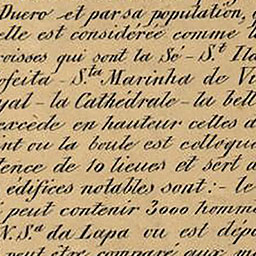 Duero et par sa population,
elle est considérée comme l
roisses qui sont la Sé - St. Ild
ofeita - Sta. Marinha de Vi
yal - la Cathédrale - la bell
excède en hauteur celles d
nt ou la boule est colloqué
tence de 10 lieues et sert d
édifices notables sont:- le
peut contenir 3000 homme
N. Sa. da Lapa ou est dépo
peut être comparé aux m